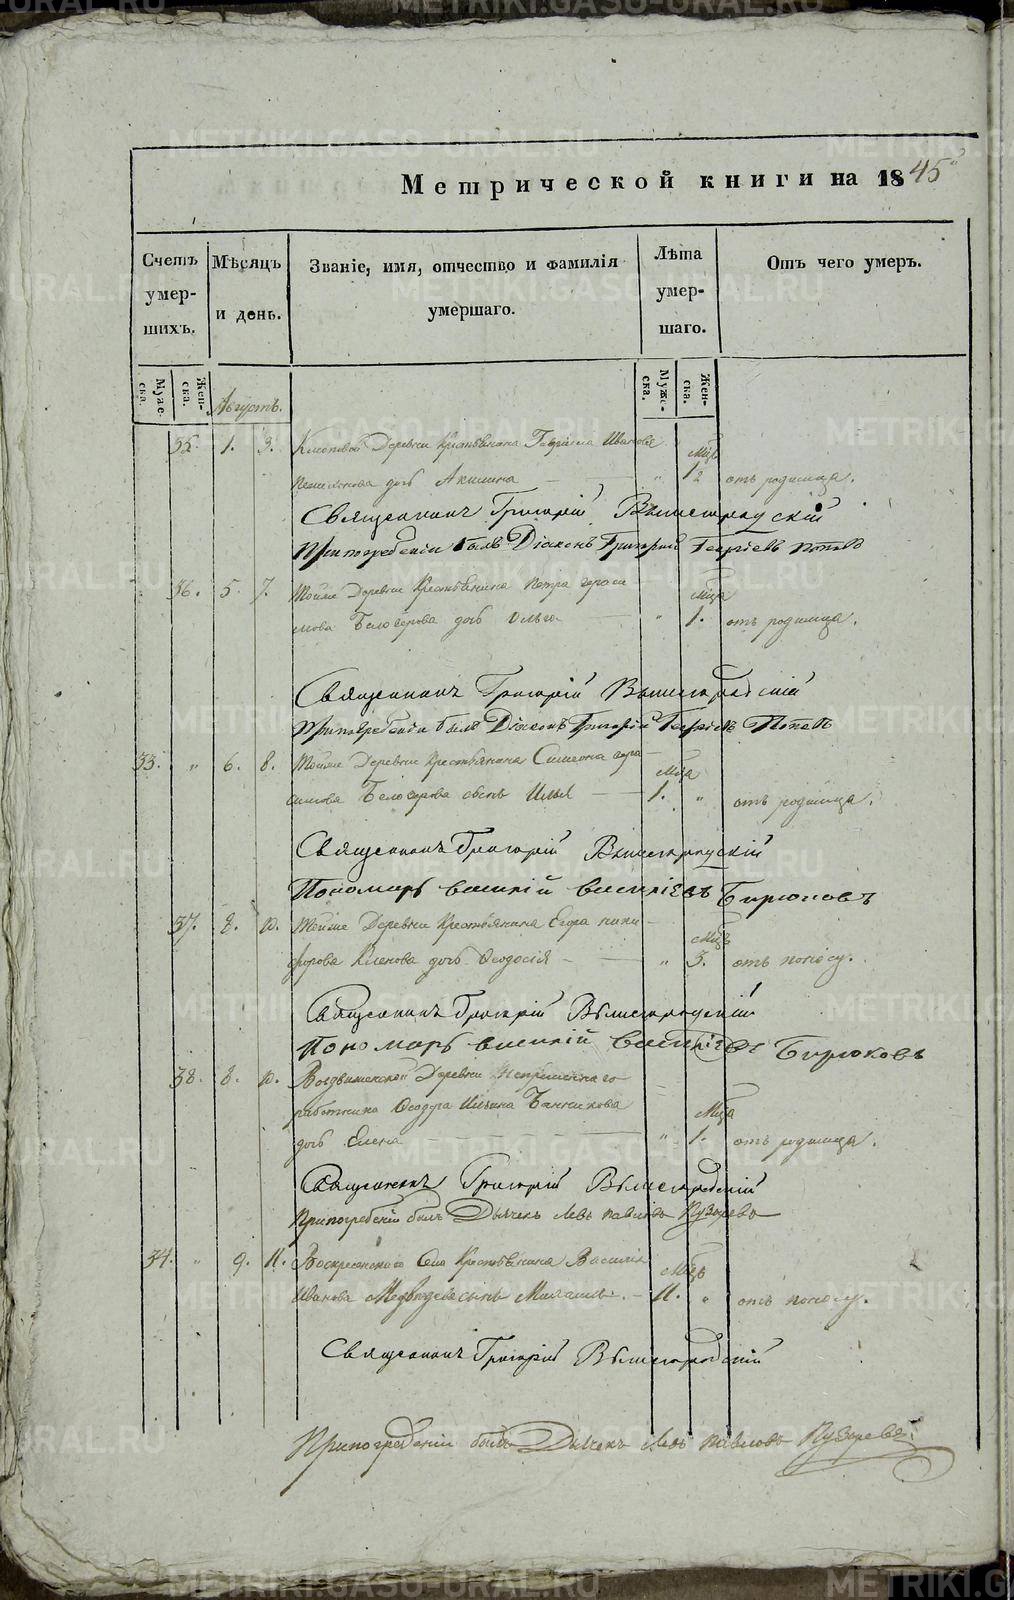 Метрической книги на 1845
Счетъ умершихъ.
Мѣсяцъ и день.
Званіе, имя, отчество и фамилія умершаго.
Лѣта умершаго.
Отъ чего умеръ.
Муже-ска.
Жен-ска.
Августъ.
Муже-ска.
Жен-ска.
35. 1. 3. Деревни Крестьянина Гавріила Иванова Мцв
дочь Акилина — „ 12 отъ родимца.
Священникъ Григорій Вышегродскій
При погребеніи былъ Діаконъ Григорій Георгіевъ Поповъ
36. 5. 7. Тойже Деревни Крестьянина Петра Гераси— Мца
мова Белозерова дочь Ольга — „ 1. отъ родимца.
Священникъ Григорій Вышегродскій
При погребеніи былъ Діаконъ Григорій Георгіевъ Поповъ
33. „ 6. 8. Тойже Деревни Крестьянина Симеона Гера— Мца
симова Белозерова сынъ Илья — 1. „ отъ родимца.
Священникъ Григорій Вышегродскій
Пономарь Василій Василіевъ Бирюковъ
37. 8. 10. Тойже Деревни Крестьянина Егора Ники— Мцв
форова дочь Ѳеодосія — „ 3. отъ поносу.
Священникъ Григорій Вышегродскій
Пономарь Василій Василіевъ Бирюковъ
38. 8. 10. Воздвиженской Деревни Непремѣннаго —
работника Ѳеодора Ильина Банникова Мца
дочь Елена — „ 1. отъ родимца.
Священникъ Григорій Вышегродскій
При погребеніи былъ Дьячекъ Левъ Павловъ
34. „ 9. 11. Воскресенскаго Села Крестьянина Василія Мцв
Иванова Медведева сынъ Михаилъ. — 11. „ отъ поносу.
Священникъ Григорій Вышегродскій
При погребеніи былъ Дьячекъ Левъ Павловъ
METRIKI.GASO-URAL.RU